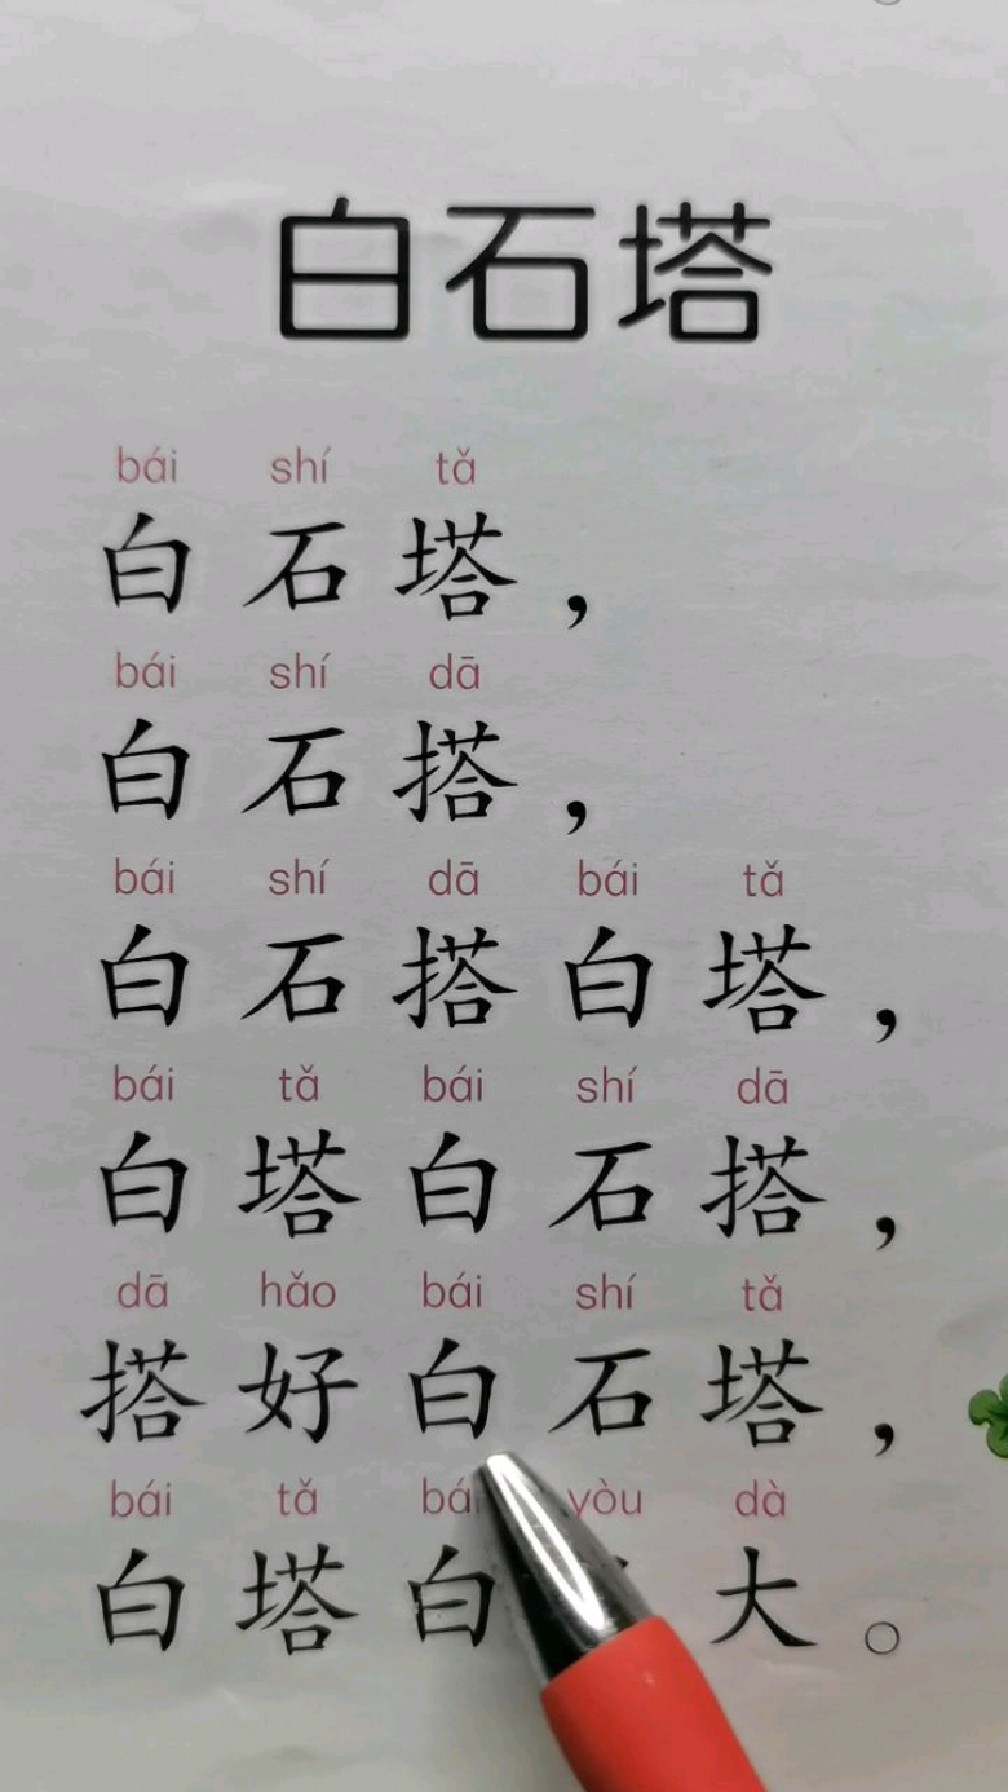 白石塔
bái shí tǎ
白石塔，
bái shí dā
白石搭，
bái shí dā bái tǎ
白石搭白塔，
bái tǎ bái shí dā
白塔白石搭，
dā hǎo bái shí tǎ
搭好白石塔，
bái tǎ bái yòu dà
白塔白大。